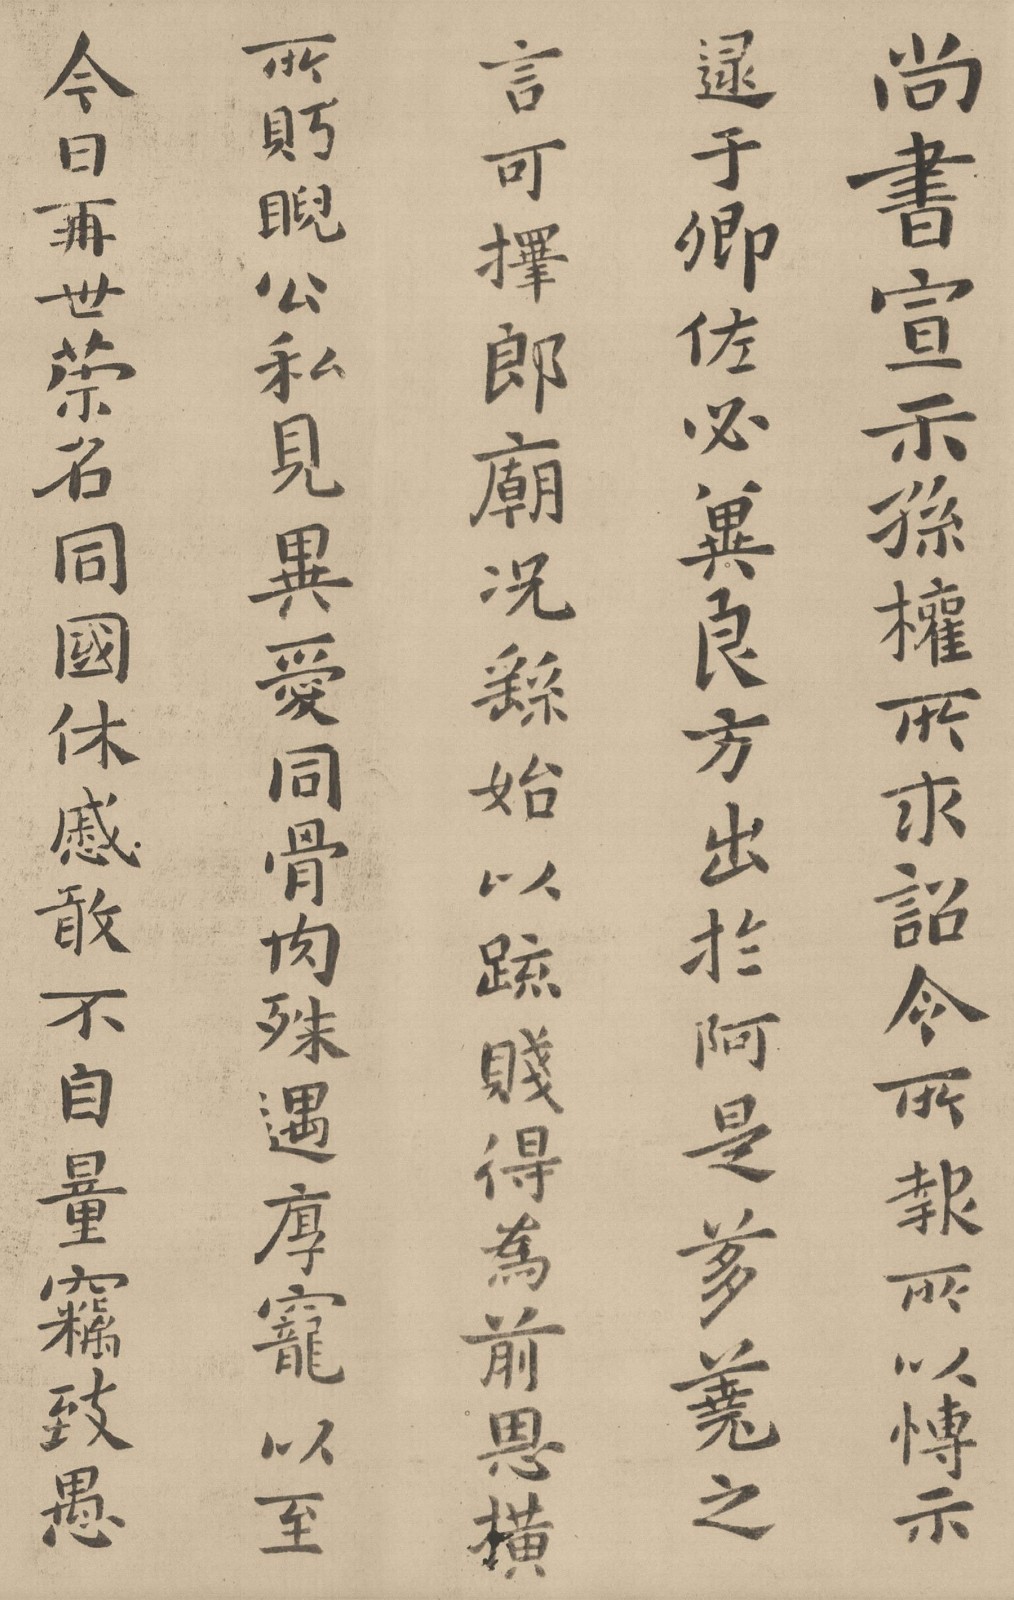 尚書宣示孫權所求詔令所報所以博示
逮于卿佐必冀良方出於阿是芻蕘之
言可擇郎廟况繇始以疏賤得為前恩橫
所眄睨公私見異愛同骨肉殊遇厚寵以至
今日再世榮名同國休慼敢不自量竊致愚